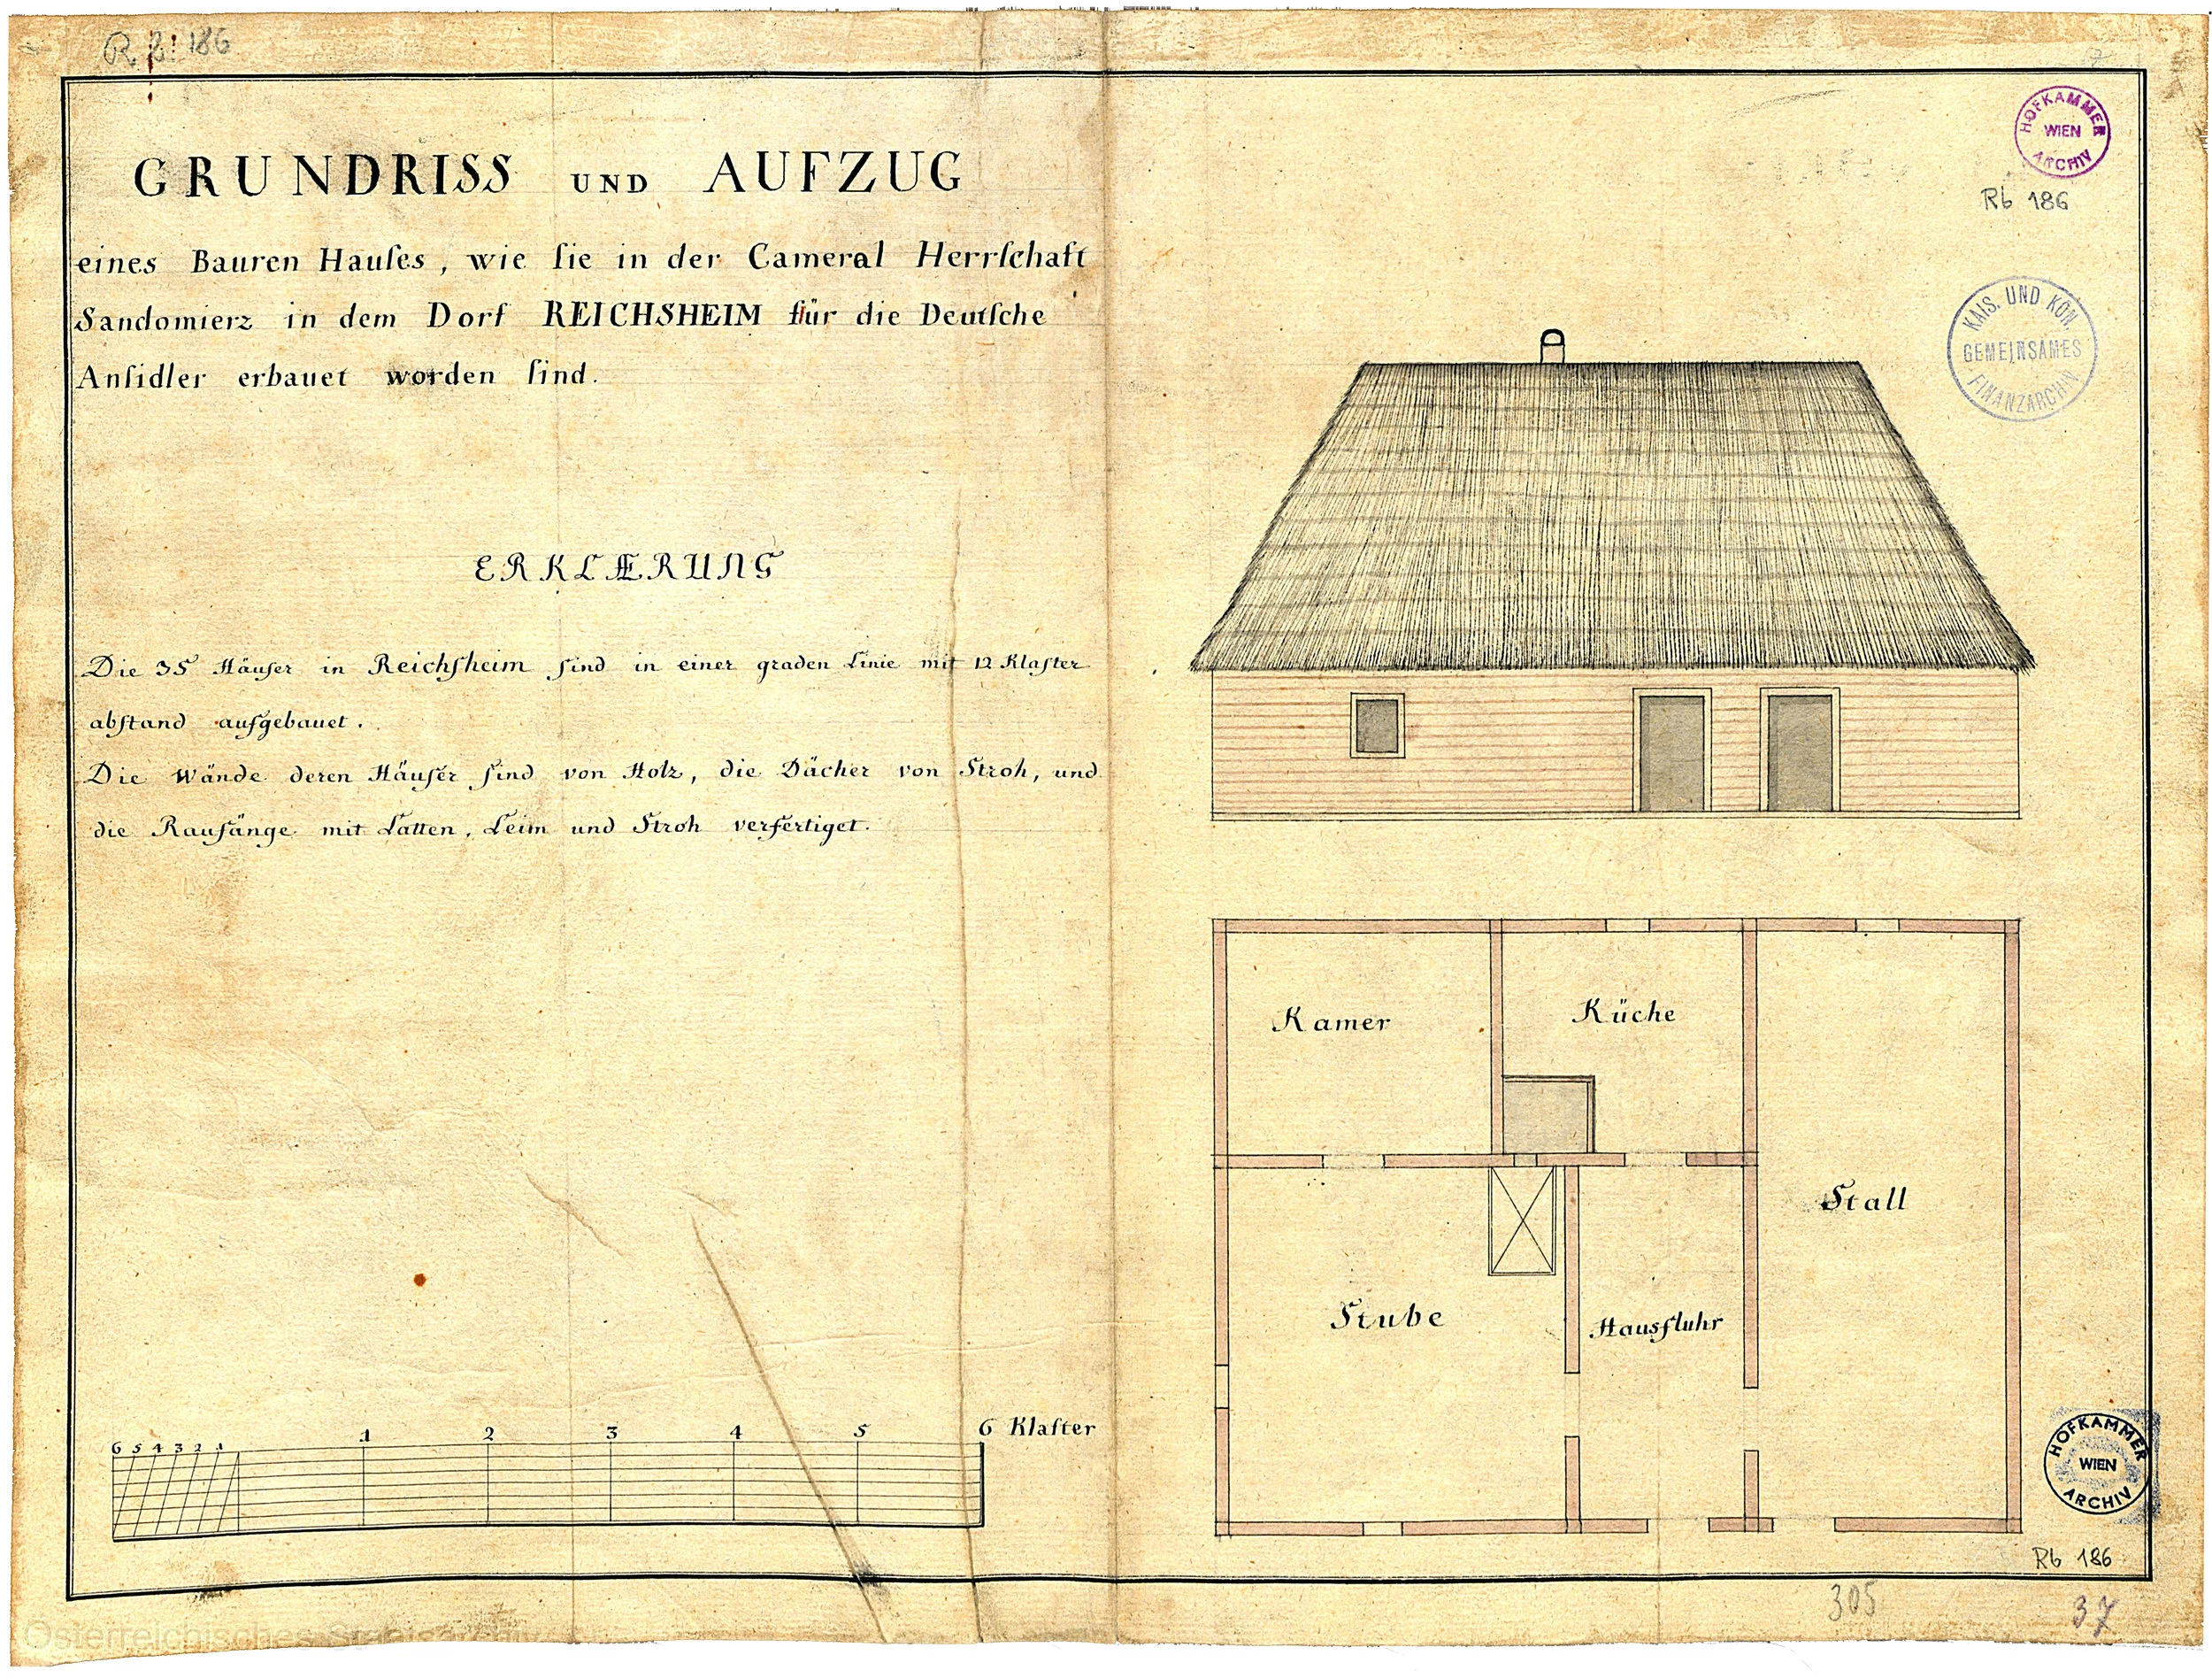 R b: 186
GRUNDRISS UND AUFZUG
eines Bauren Hauſes, wie ſie in der Cameral Herrſchaft
Sandomierz in dem Dorf REICHSHEIM für die Deutſche
Anſidler erbauet worden ſind.
ERKLÆRUNG
Die 35 Häuſer in Reichſheim ſind in einer graden Linie mit 12 Klafter
abſtand aufgebauet.
Die Wände deren Häuſer ſind von Holz, die Dächer von Stroh, und
die Raufänge mit Latten, Leim und Stroh verfertiget.
6 5 4 3 2 1 1 2 3 4 5 6 Klafter
HOFKAMMER
WIEN
ARCHIV
Rb 186
KAIS. UND KÖN.
GEMEINSAMES
FINANZARCHIV
Kamer
Küche
Stall
Stube
Hausfluhr
HOFKAMMER
WIEN
ARCHIV
Rb 186
305
37
Österreichisches Staatsarchiv